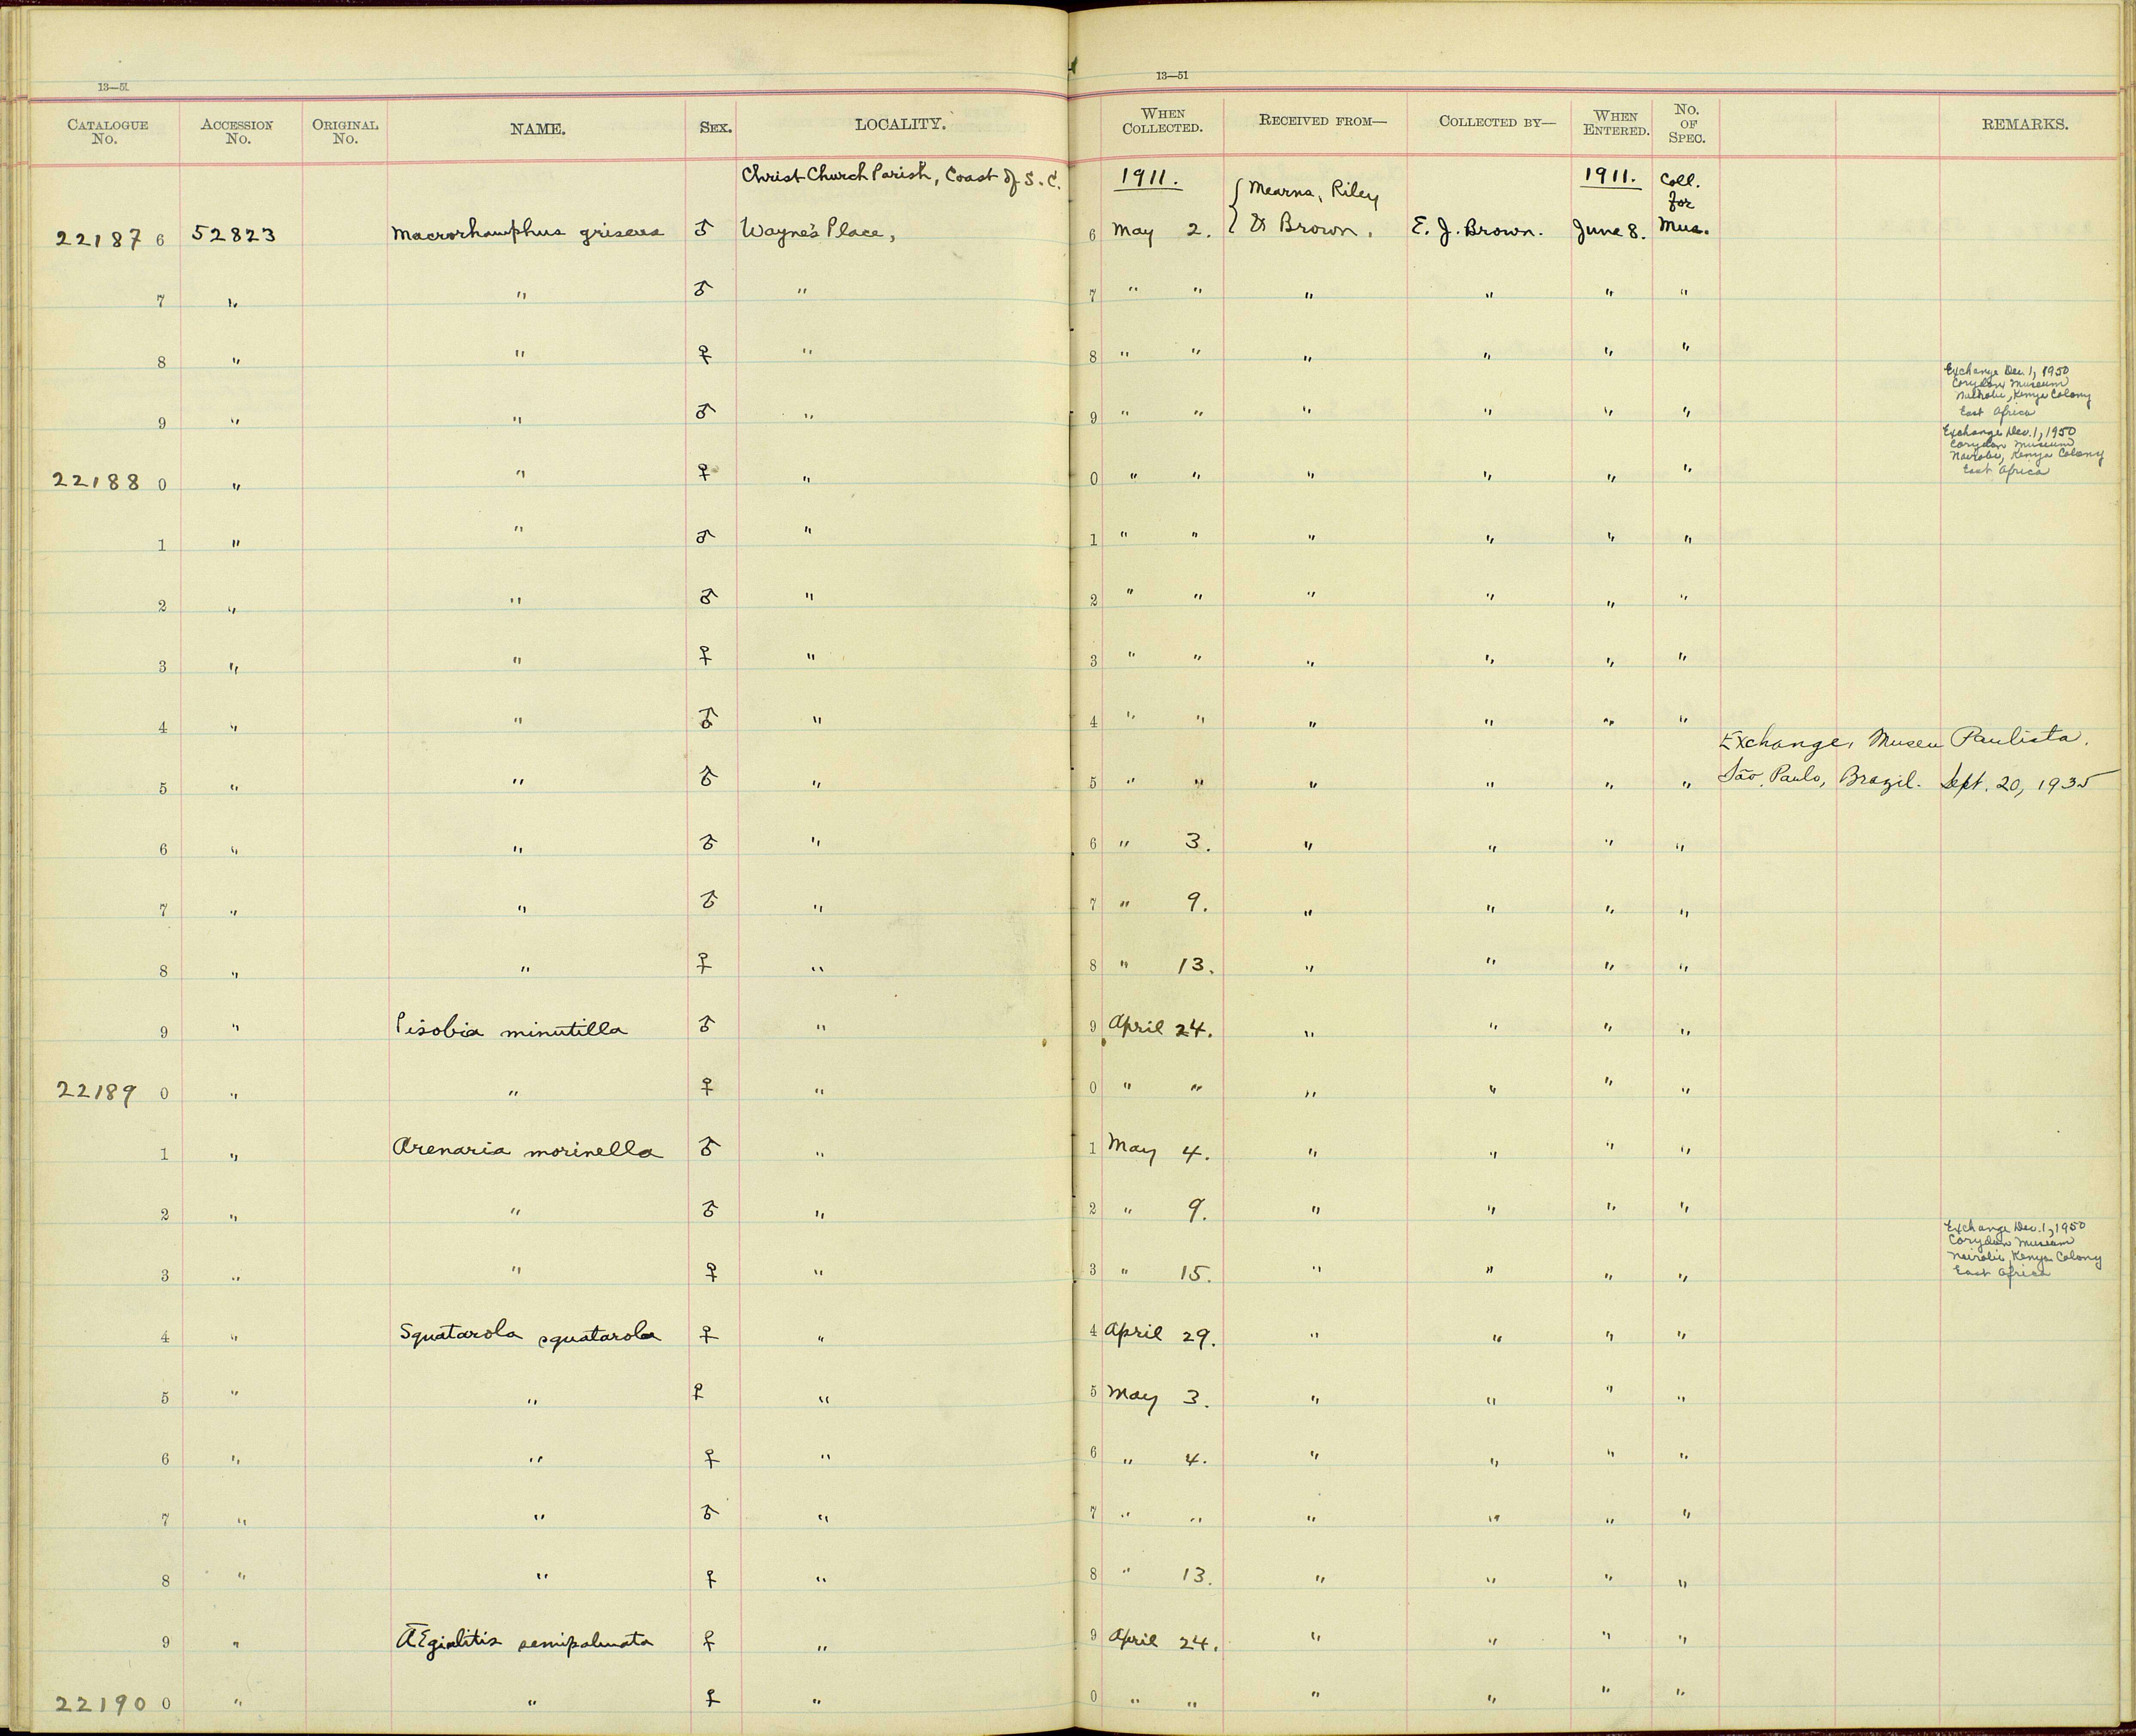 13—51
13—51
CATALOGUE No. ACCESSION No. ORIGINAL No. NAME. SEX. LOCALITY. WHEN COLLECTED. RECEIVED FROM— COLLECTED BY— WHEN ENTERED. No. OF SPEC. REMARKS.
Christ Church Parish, Coast of S. C. 1911. { Mearns, Riley 1911. Coll. for
22187 6 52823 Macrorhamphus griseus ♂ Wayne's Place, 6 May 2. & Brown. E. J. Brown. June 8. Mus.
7 " " ♂ " 7 " " " " " "
8 " " ♀ " 8 " " " " " "
Exchange Dec. 1, 1950
Corydon Museum
Nairobi, Kenya Colony
East Africa
9 " " ♂ " 9 " " " " " "
Exchange Dec. 1, 1950
Corydon Museum
Nairobi, Kenya Colony
East Africa
22188 0 " " ♀ " 0 " " " " " "
1 " " ♂ " 1 " " " " " "
2 " " ♂ " 2 " " " " " "
3 " " ♀ " 3 " " " " " "
4 " " ♂ " 4 " " " " " "
Exchange, Museu Paulista.
5 " " ♂ " 5 " " " " " " São Paulo, Brazil. Sept. 20, 1935
6 " " ♂ " 6 " 3. " " " "
7 " " ♂ " 7 " 9. " " " "
8 " " ♀ " 8 " 13. " " " "
9 " Pisobia minutilla ♂ " 9 April 24. " " " "
22189 0 " " ♀ " 0 " " " " " "
1 " Arenaria morinella ♂ " 1 May 4. " " " "
2 " " ♂ " 2 " 9. " " " "
Exchange Dec. 1, 1950
Corydon Museum
Nairobi, Kenya Colony
East Africa
3 " " ♀ " 3 " 15. " " " "
4 " Squatarola squatarola ♀ " 4 April 29. " " " "
5 " " ♀ " 5 May 3. " " " "
6 " " ♀ " 6 " 4. " " " "
7 " " ♂ " 7 " " " " " "
8 " " ♀ " 8 " 13. " " " "
9 " Ægialitis semipalmata ♀ " 9 April 24. " " " "
22190 0 " " ♀ " 0 " " " " " "